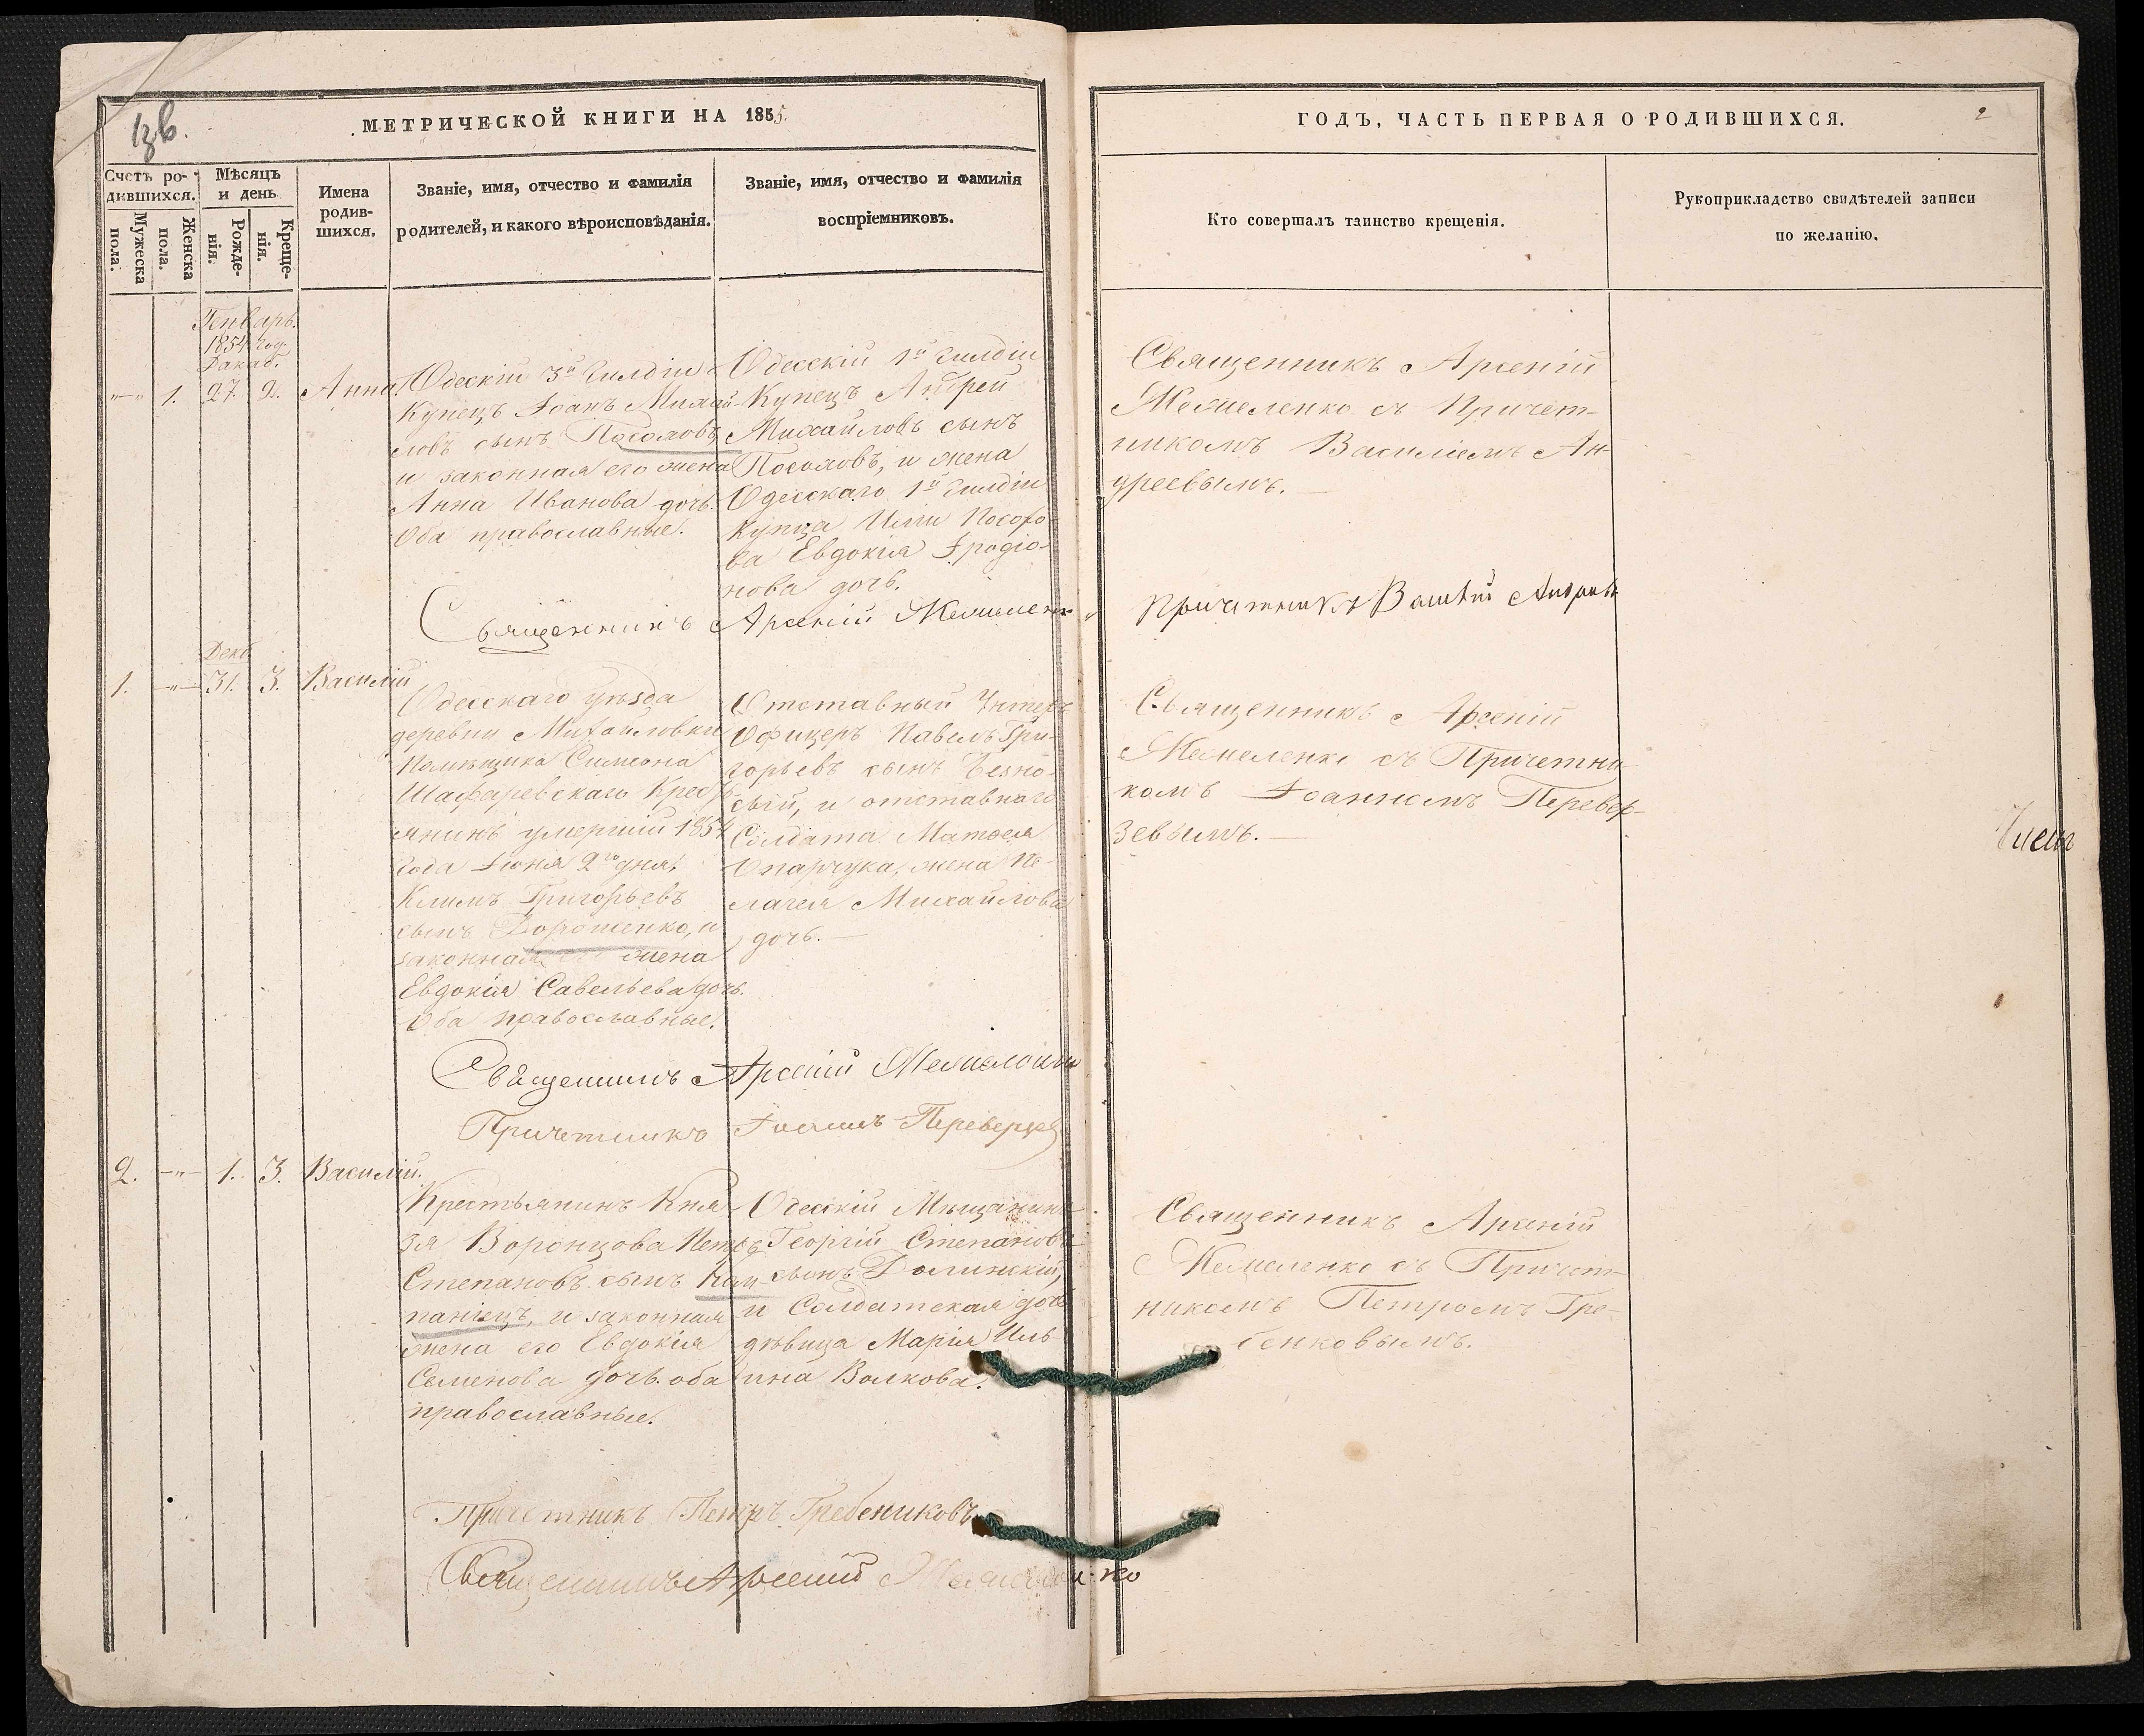 МЕТРИЧЕСКОЙ КНИГИ НА 1855
ГОДЪ, ЧАСТЬ ПЕРВАЯ О РОДИВШИХСЯ.
2
Счетъ ро-
дившихся.
Мужеска
пола.
Женска
пола.
Мѣсяцъ
и день
Рожде-
нія.
Креще-
нія.
Имена
родив-
шихся.
Званіе, имя, отчество и фамилія
родителей, и какого вѣроисповѣданія.
Званіе, имя, отчество и фамилія
воспріемниковъ.
Кто совершалъ таинство крещенія.
Рукоприкладство свидѣтелей записи
по желанію.
Генварь.
1854 год.
Декаб.
1. 27. 2. Анна
Одескій 3й Гилдіи
Купецъ Іоанъ Михай-
ловъ сынъ Посоховъ
и законная его жена
Анна Иванова дочь.
Оба православные.
Одесскій 1й Гилдіи
Купецъ Андрей
Михайловъ сынъ
Посоховъ, и жена
Одесскаго 1й Гилдіи
Купца Иліи Посохо-
ва Евдокія Іродіо-
нова дочь.
Священникъ Арсеній
съ Причет-
никомъ Василіемъ Ан-
дреевымъ.
Священникъ Арсеній
Причетникъ
Декб
1. 31. 3. Василій
Одесскаго уѣзда
деревни Михайловки
Помѣщика Симеона
Шафаревскаго Кресть-
янинъ умершій 1854
года Іюня 2го дня,
Климъ Григорьевъ
сынъ Дорошенко, и
законная его жена
Евдокія Савельева дочь.
Оба православные.
Отставный Унтеръ
Офицеръ Павелъ Гри-
горьевъ сынъ Безно-
сый, и отставнаго
Солдата Матвея
Опарчука, жена Пе-
лагея Михайлова
дочь.
Священникъ Арсеній
съ Причетни-
комъ Іоанномъ Перевер-
зевымъ.
Священникъ Арсеній
Причетникъ Іоаннъ Переверзев
2. 1. 3. Василій.
Крестьянинъ Кня-
зя Воронцова Петръ
Степановъ сынъ Кам-
паніецъ, и законная
жена его Евдокія
Семенова дочь. оба
православные.
Одесскій Мѣщанинъ
Георгій Степановъ
сынъ Долинскій,
и Солдатская дочь
дѣвица Марія Иль-
ина Волкова.
Священникъ Арсеній
съ Причет-
никомъ Петромъ Гре-
бенковымъ.
Причетникъ Петръ Гребениковъ
Священникъ Арсеній